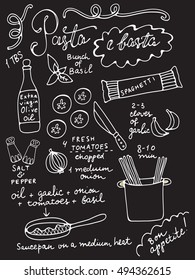 Pasta
e basta
1 TBS
Bunch
of
Basil
SPAGHETTI
Extra
virgin
Olive
oil
2-3
cloves
of
garlic
4 FRESH
TOMATOES
chopped
4 medium
onion
8-10
min
SALT
&
PEPPER
oil + garlic + onion
+ tomatoes + basil
Saucepan on a medium heat
Bon
appetite
494362615